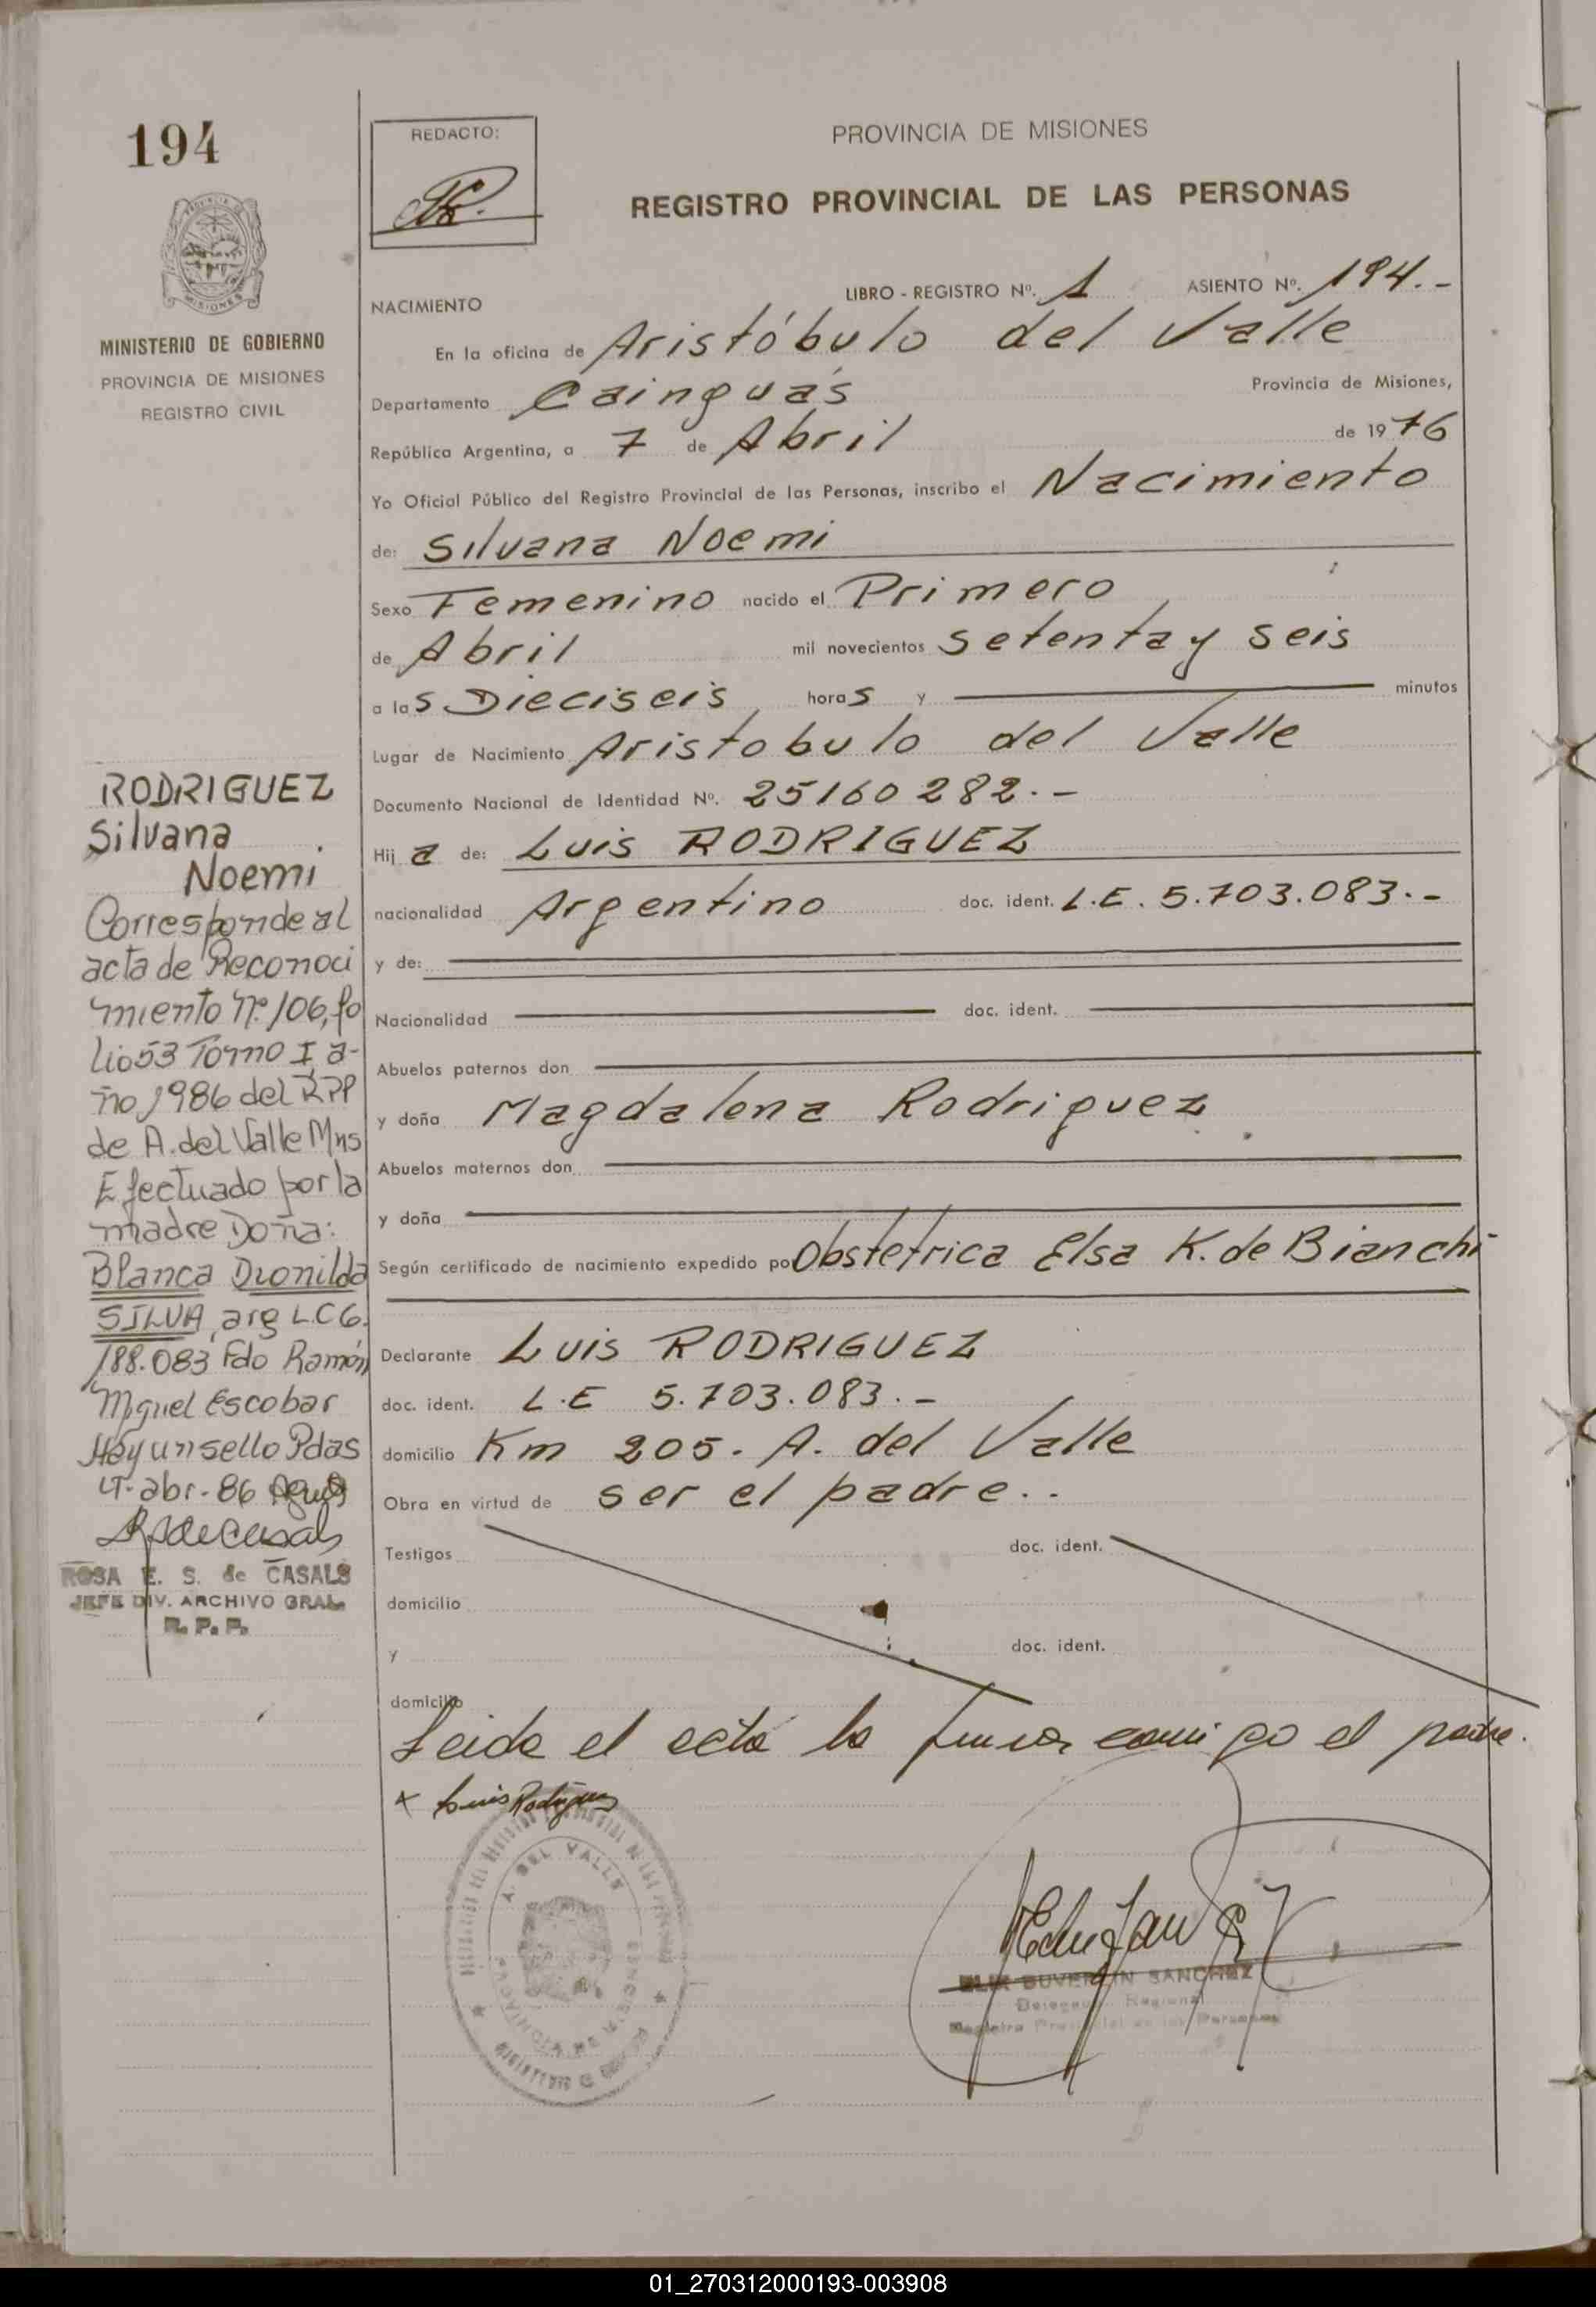 194
REDACTO:
PROVINCIA DE MISIONES
REGISTRO PROVINCIAL DE LAS PERSONAS
MISIONES
MINISTERIO DE GOBIERNO
PROVINCIA DE MISIONES
REGISTRO CIVIL
NACIMIENTO
LIBRO - REGISTRO Nº. 1 ASIENTO Nº. 194.-
En la oficina de Aristóbulo del Valle
Departamento Cainguás Provincia de Misiones,
República Argentina, a 7 de Abril de 1976
Yo Oficial Público del Registro Provincial de las Personas, inscribo el Nacimiento
de: Silvana Noemi
Sexo Femenino nacido el Primero
de Abril mil novecientos setenta y seis
a las Dieciseis horas y minutos
Lugar de Nacimiento Aristobulo del Valle
Documento Nacional de Identidad Nº. 25160282.-
Hija de: Luis RODRIGUEZ
nacionalidad Argentino doc. ident. L.E. 5.703.083.-
y de:
Nacionalidad doc. ident.
Abuelos paternos don
y doña Magdalena Rodriguez
Abuelos maternos don
y doña
Según certificado de nacimiento expedido por Obstetrica Elsa K. de Bianchi
Declarante Luis RODRIGUEZ
doc. ident. L.E 5.703.083.-
domicilio Km 205. A. del Valle
Obra en virtud de ser el padre..
Testigos doc. ident.
domicilio
y doc. ident.
domicilio
Leida el acta la firma conmigo el padre.
x Luis Rodriguez
RODRIGUEZ
Silvana
Noemi
Corresponde al
acta de Reconoci
miento Nº 106, fo
lio 53 Tomo I, a-
ño 1986 del RPP
de A. del Valle Mns
Efectuado por la
madre Doña:
Blanca Dionilda
SILVA, arg L.C 6.
188.083 Fdo Ramón
Miguel Escobar
Hay un sello Pdas
4-abr-86
ROSA E. S. de CASALS
JEFE DIV. ARCHIVO GRAL.
R. P. P.
A. DEL VALLE
PROVINCIA DE MISIONES
SANCHEZ
Delegado Regional
Registro Provincial de las Personas
01_270312000193-003908